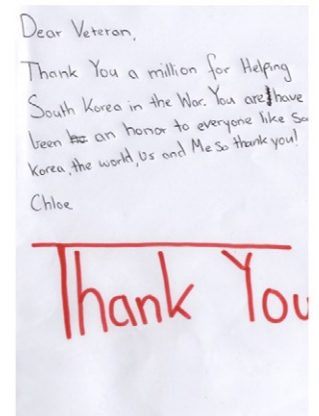 Dear Veteran,
Thank You a million for Helping
South Korea in the War. You are/have
been an honor to everyone like So
Korea, the world, Us and Me So thank you!
Chloe
Thank You